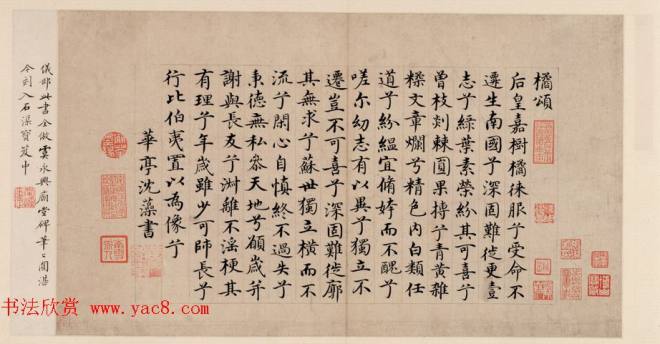 橘頌
后皇嘉樹橘徠服兮受命不
遷生南國兮深固難徙更壹
志兮綠葉素榮紛其可喜兮
曾枝剡棘圓果摶兮青黃雜
糅文章爛兮精色内白類任
道兮紛緼宜脩姱而不醜兮
嗟尔幼志有以異兮獨立不
遷豈不可喜兮深固難徙廓
其無求兮蘇世獨立橫而不
流兮閉心自慎終不過失兮
秉德無私參天地兮願歲并
謝與長友兮淑離不滛梗其
有理兮年歲雖少可師長兮
行比伯夷置以為像兮
華亭沈藻書
儀部此書全倣虞永興廟堂碑筆〻圓湛
今刻入石渠寶笈中
书法欣赏 www.yac8.com